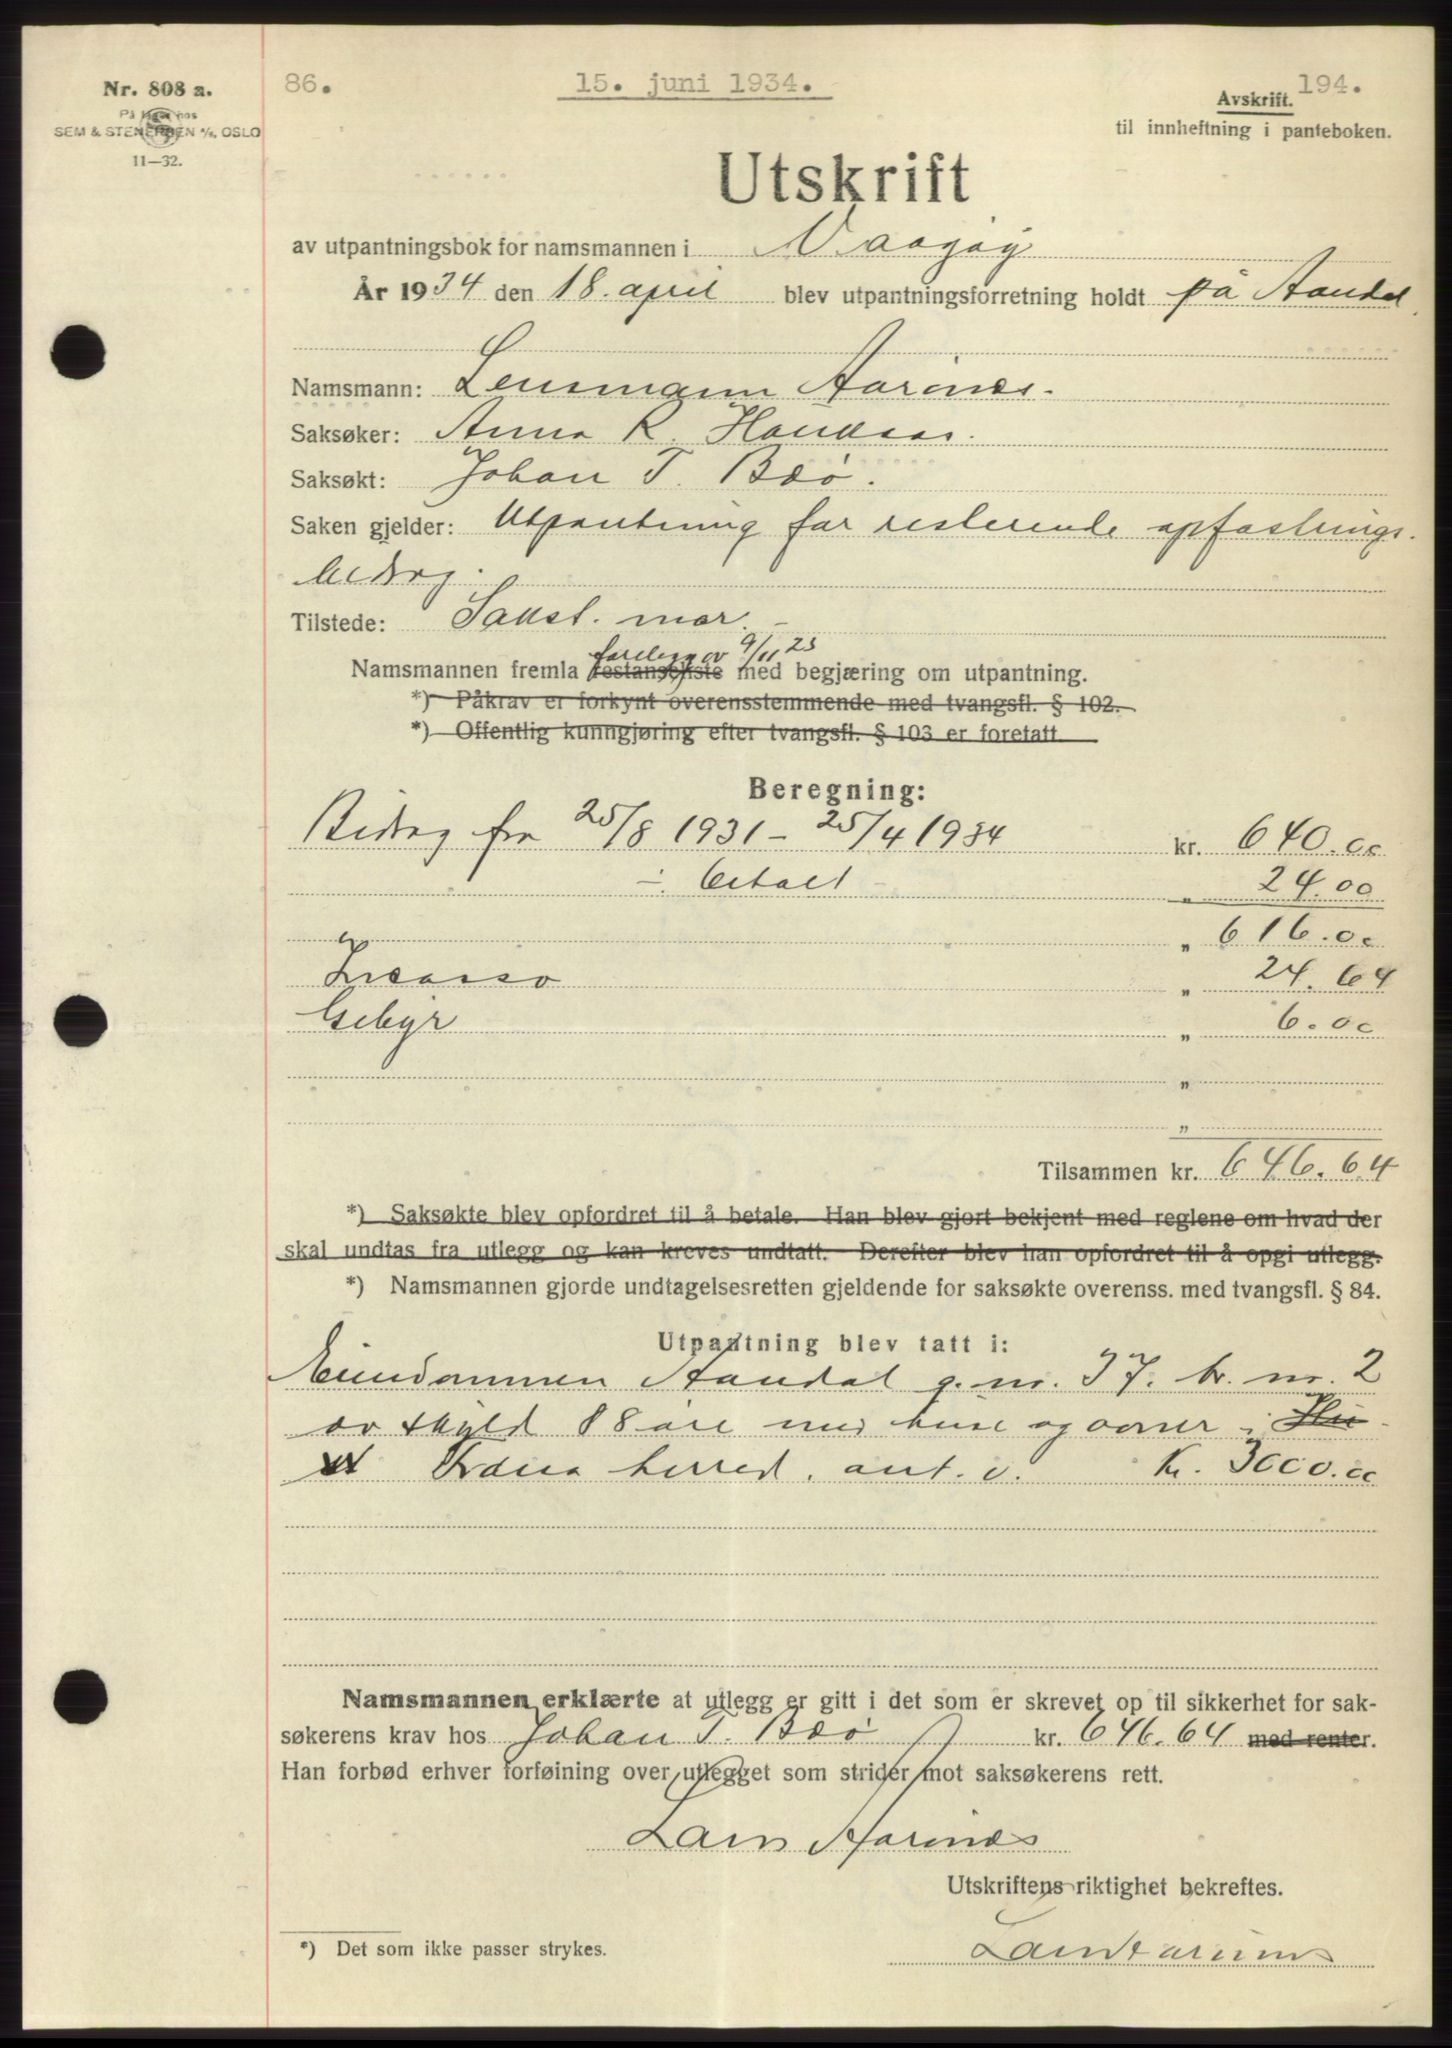 Nr. 808 a.
På lager hos
SEM & STENERSEN A/S, OSLO
11—32.
86.
15. juni 1934.
194.
Avskrift.
til innheftning i panteboken.
Utskrift
av utpantningsbok for namsmannen i Vaagøy
År 1934 den 18. april blev utpantningsforretning holdt på Aandal.
Namsmann: Lensmann Aarines.
Saksøker: Anna R. Hauksas.
Saksøkt: Johan T. Bøø.
Saken gjelder: Utpantning for resterende opfostrings-
bidrag.
Tilstede: Sakst. mor.
forelegg av 9/11 23
Namsmannen fremla restanseliste med begjæring om utpantning.
*) Påkrav er forkynt overensstemmende med tvangsfl. § 102.
*) Offentlig kunngjøring efter tvangsfl. § 103 er foretatt
Beregning:
Bidrag fra 25/8 1931 – 25/4 1934 kr. 640.00
÷ betalt – „ 24.00
„ 616.00
Incasso „ 24.64
Gebyr „ 6.00
„
„
Tilsammen kr. 646.64
*) Saksøkte blev opfordret til å betale. Han blev gjort bekjent med reglene om hvad der
skal undtas fra utlegg og kan kreves undtatt. Derefter blev han opfordret til å opgi utlegg.
*) Namsmannen gjorde undtagelsesretten gjeldende for saksøkte overenss. med tvangsfl. § 84.
Utpantning blev tatt i:
Eiendommen Aandal g. nr. 37. br. nr. 2
av skyld 88 øre med huse og avner i Hu-
st Fræna herred, ant. v. Kr. 3000.00
Namsmannen erklærte at utlegg er gitt i det som er skrevet op til sikkerhet for sak-
søkerens krav hos Johan T. Bøø kr. 646.64 med renter.
Han forbød erhver forføining over utlegget som strider mot saksøkerens rett.
Lars Aarines
Utskriftens riktighet bekreftes.
*) Det som ikke passer strykes.
Lars Aarines